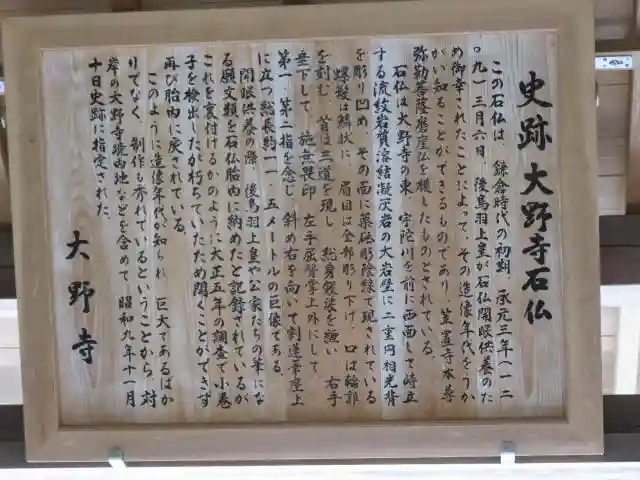 史跡大野寺石仏
この石仏は、鎌倉時代の初期、承元三年(一二
〇九)三月六日、後鳥羽上皇が石仏開眼供養のた
め御幸されたことによって、その造像年代をうか
がい知ることができるものであり、笠置寺本尊
弥勒菩薩磨崖仏を模したものとされている。
石仏は大野寺の東、宇陀川を前に西面して峙立
する流紋岩質溶結凝灰岩の大岩壁に二重円相光背
を彫り凹め、その面に薬研彫陰線で現されている
螺髪は渦状に、眉目は全部彫り下げ、口は輪郭
を刻む。首は三道を現し、総身袈裟を纏い、右手
垂下して、施無畏印、左手屈臂掌上外にして、
第一・第二指を念じ、斜め右を向いて割蓮華座上
に立つ総長約一一・五メートルの巨像である。
開眼供養の際、後鳥羽上皇や公家たちの筆にな
る願文類を石仏胎内に納めたと記録されているが
これを裏付けるかのように大正五年の調査で小巻
子を検出したが朽ちていたため開くことができず
再び胎内に戻されている。
このように造像年代が知られ、巨大であるばか
りでなく、制作も秀れているということから、対
岸の大野寺境内地などを含めて、昭和九年十一月
十日史跡に指定された。
大野寺